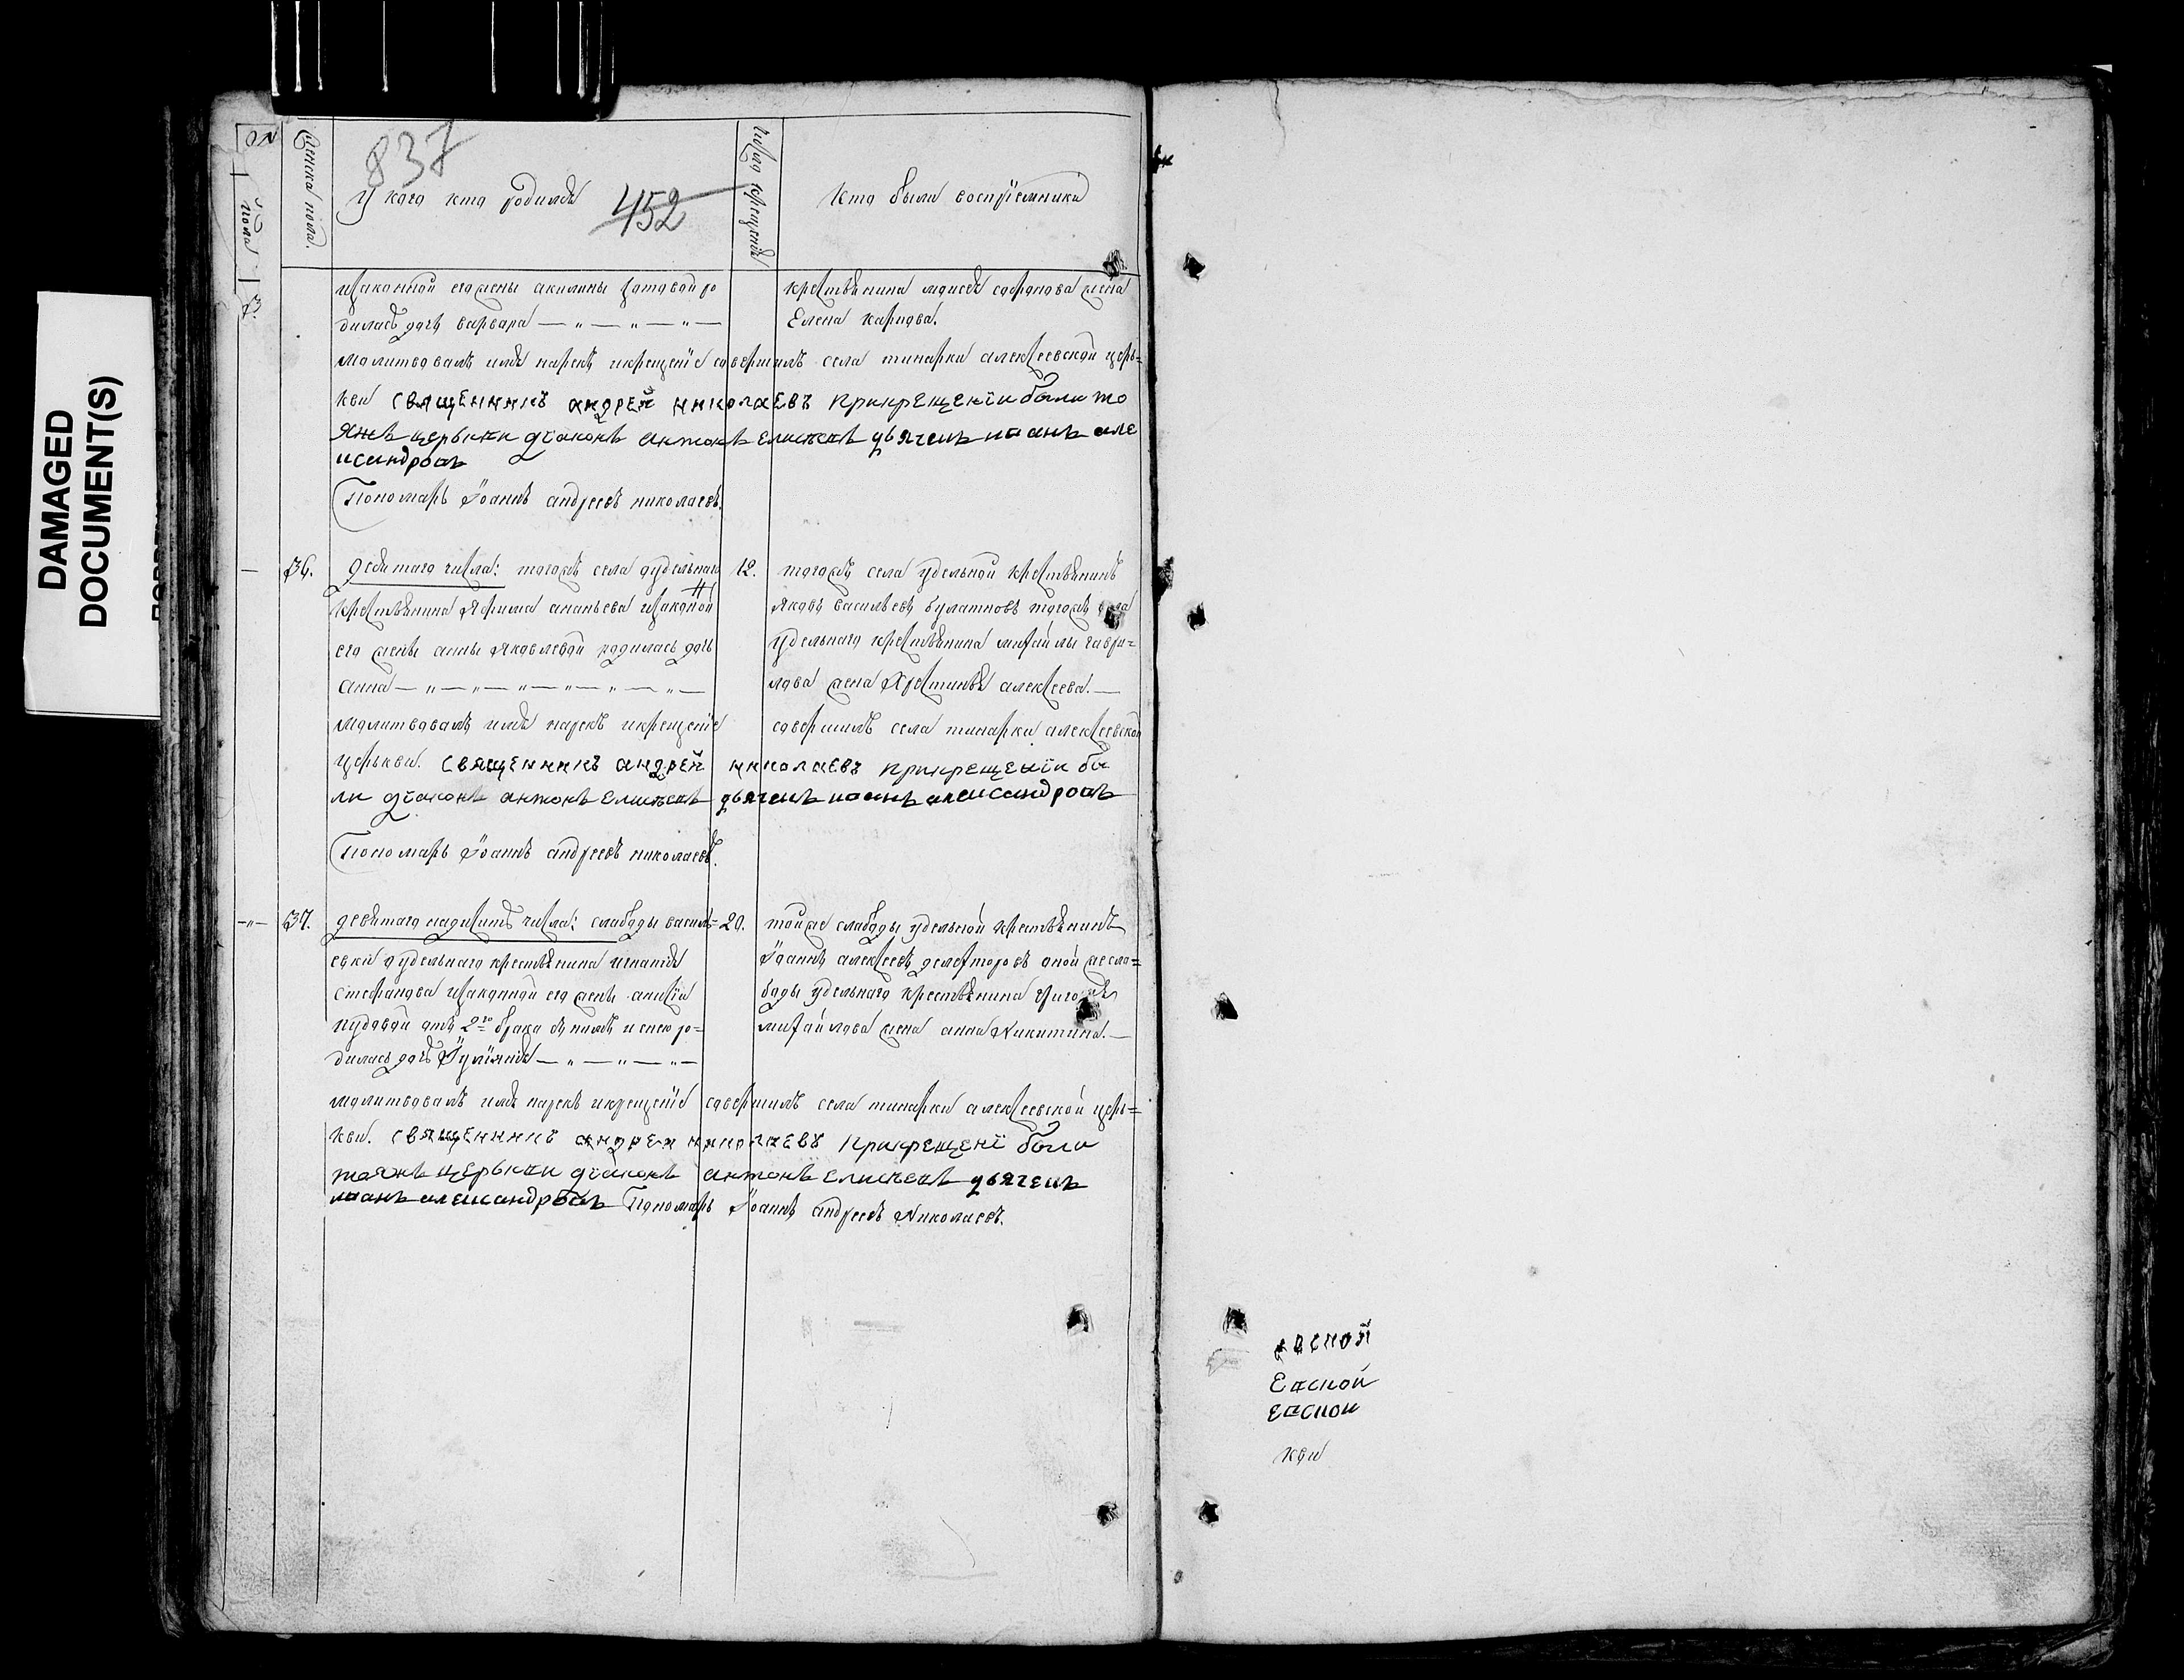 DAMAGED
DOCUMENT(S)
837
452
№
Женска пола.
у кого кто родился
Число крещенія
кто были воспріемники
изаконной его жены акилины Титовой ро
дилась дочь варвара — „ — „ — „ —
крестьянина моисея сафонова жена
Елена карпова.
молитвовалъ имя нарекъ икрещеніе совершилъ села тинарки алексеевской церь=
кви священникъ андрей николаевъ прикрещеніи были то
яжъ церьвки діаконъ антонъ Елисеевъ дьячекъ иоанъ але
исандровъ
Пономарь Іоаннъ андреевъ николаевъ.
— 36. девятаго числа: тогожъ села удельнаго
крестьянина Ефима ананьева изаконной
его жены анны Яковлевой родилась дочь
анна — „ — „ — „ — „ — „ — „ —
12. тогожъ села удельной крестьянинъ
Яковъ васильевъ булатновъ тогожъ села
удельнаго крестьянина михайлы гаври=
лова жена Христинья алексеева. —
молитвовалъ имя нарекъ икрещеніе совершилъ села тинарки алексеевской
церькви. священникъ андрей николаевъ прикрещеніи бы
ли діаконъ антонъ Елисеевъ дьячекъ иоанъ александровъ
Пономарь Іоаннъ андреевъ николаевъ.
—„— 37. девятаго надесять числа: слабоды василь=
евки удельнаго крестьянина игнатія
Стефанова изаконной его жены анисіи
отъ 2го брака онъ и снею ро=
дилась дочь Іуліянія — „ — „ — „ —
20. тойже слабоды удельной крестьянинъ
Іоаннъ алексеевъ оной же сла=
боды удельнаго крестьянина Григорія
михайлова жена анна Никитина. —
молитвовалъ имя нарекъ икрещеніе совершилъ села тинарки алексеевской церь=
кви. священникъ андреи николаевъ прикрещені были
тояжъ церьвки діаконъ антонъ Елисеевъ дьячекъ
иоанъ александровъ Пономарь Іоаннъ андреевъ Николаевъ.
евской
Евской
евскои
кви